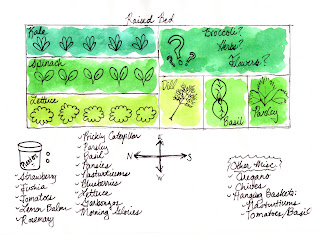 Raised Bed
Kale
Broccoli?
Herbs?
Flowers?
Spinach
Lettuce
Dill
Basil
Parsley
Pots
Strawberry
Fushia
Tomatoes
Lemon Balm
Rosemary
Prickly Caterpillar
Parsley
Basil
Pansies
Nasturtiums
Blueberries
Lettuce
Gerberas
Morning Glories
E
N
S
W
Other Misc.
Oregano
Chives
Hanging Baskets:
Nasturtiums
Tomatoes/Basil